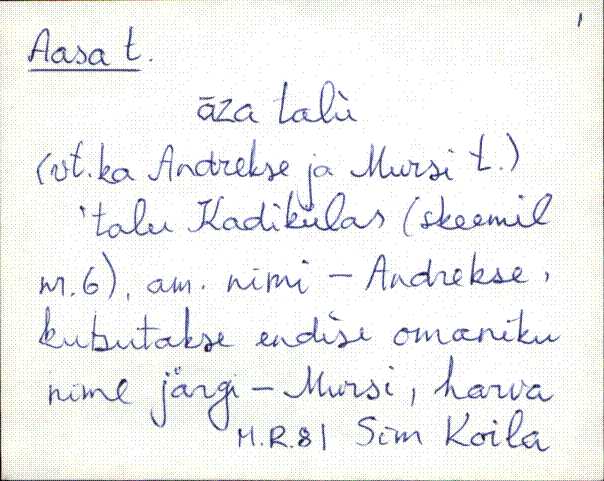 1
Aasa t.
āza talù
(vt. ka Andrekse ja Mursi t.)
'talu Kadikülas (skeemil
nr. 6), am. nimi - Andrekse,
kutsutakse endise omaniku
nime järgi - Mursi, harva
M.R.81 Sim Koila